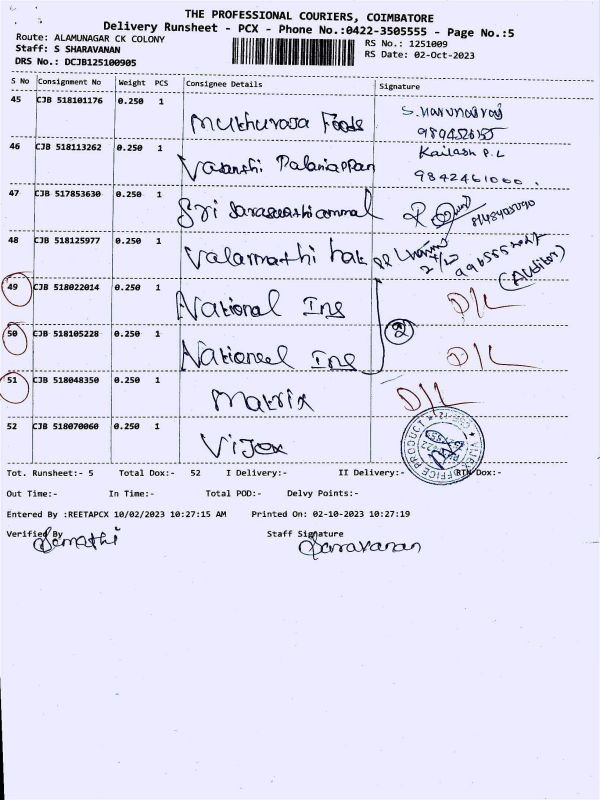 THE PROFESSIONAL COURIERS, COIMBATORE
Delivery Runsheet - PCX - Phone No.:0422-3505555 - Page No.:5
Route: ALAMUNAGAR CK COLONY
RS No.: 1251009
Staff: S SHARAVANAN
RS Date: 02-Oct-2023
DRS No.: DCJB125100905
S No Consignment No Weight PCS Consignee Details Signature
45 CJB 518101176 0.250 1
Muthuraja Foods
46 CJB 518113262 0.250 1 Kailash P.L
Vasanthi Palaniappan 9842461060.
47 CJB 517853630 0.250 1
Sri Saraswathiammal
48 CJB 518125977 0.250 1
Valarmathi
(Auditor)
49 CJB 518022014 0.250 1
National Ins D/L
50 CJB 518105228 0.250 1 2
National Ins D/L
51 CJB 518048350 0.250 1
Matrix D/L
52 CJB 518070060 0.250 1
Vijox
Tot. Runsheet:- 5 Total Dox:- 52 I Delivery:- II Delivery:- RTN Dox:-
Out Time:- In Time:- Total POD:- Delvy Points:-
Entered By :REETAPCX 10/02/2023 10:27:15 AM Printed On: 02-10-2023 10:27:19
Verified By Staff Signature
Saravanan